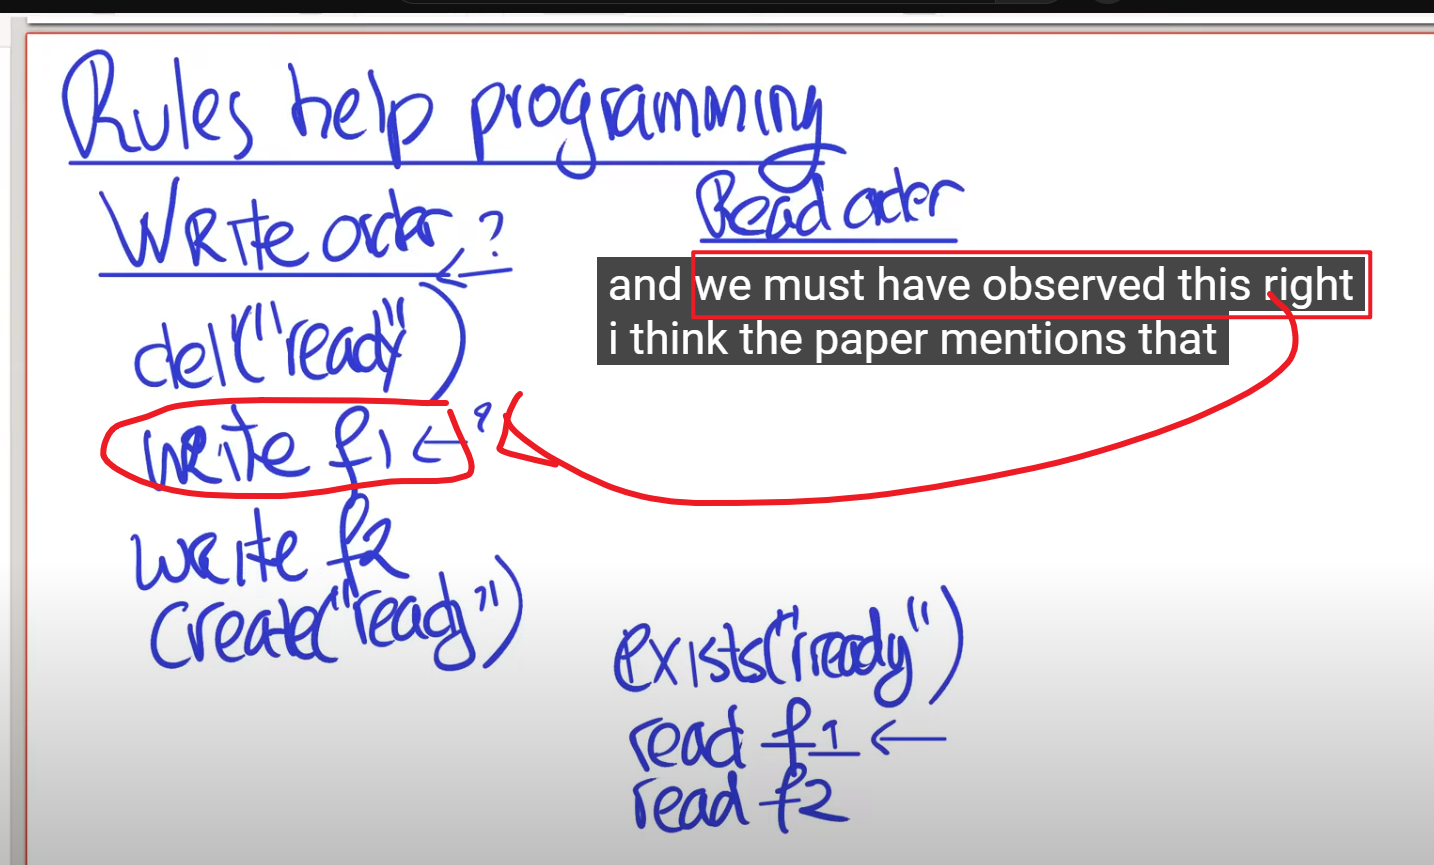 Rules help programming
Write order ?
del("ready")
write f1 ←
write f2
create("ready")
Read order
and we must have observed this right
i think the paper mentions that
exists("ready")
read f1 ←
read f2